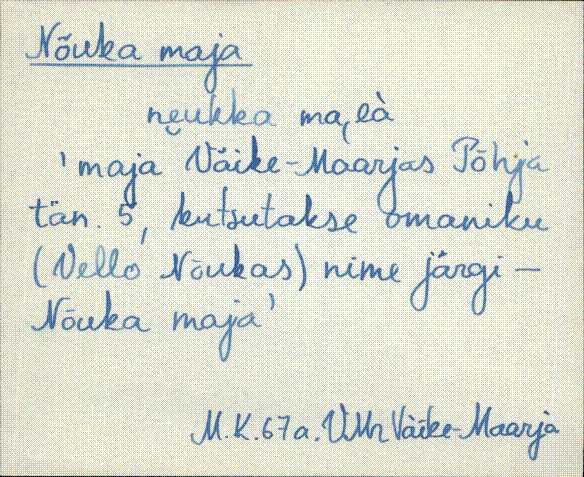 Nõuka maja
ne̮ukka ma,ɛà
'maja Väike-Maarjas Põhja
tän. 5, kutsutakse omaniku
(Vello Nõukas) nime järgi –
Nõuka maja'
M.K. 67 a. VMr Väike-Maarja